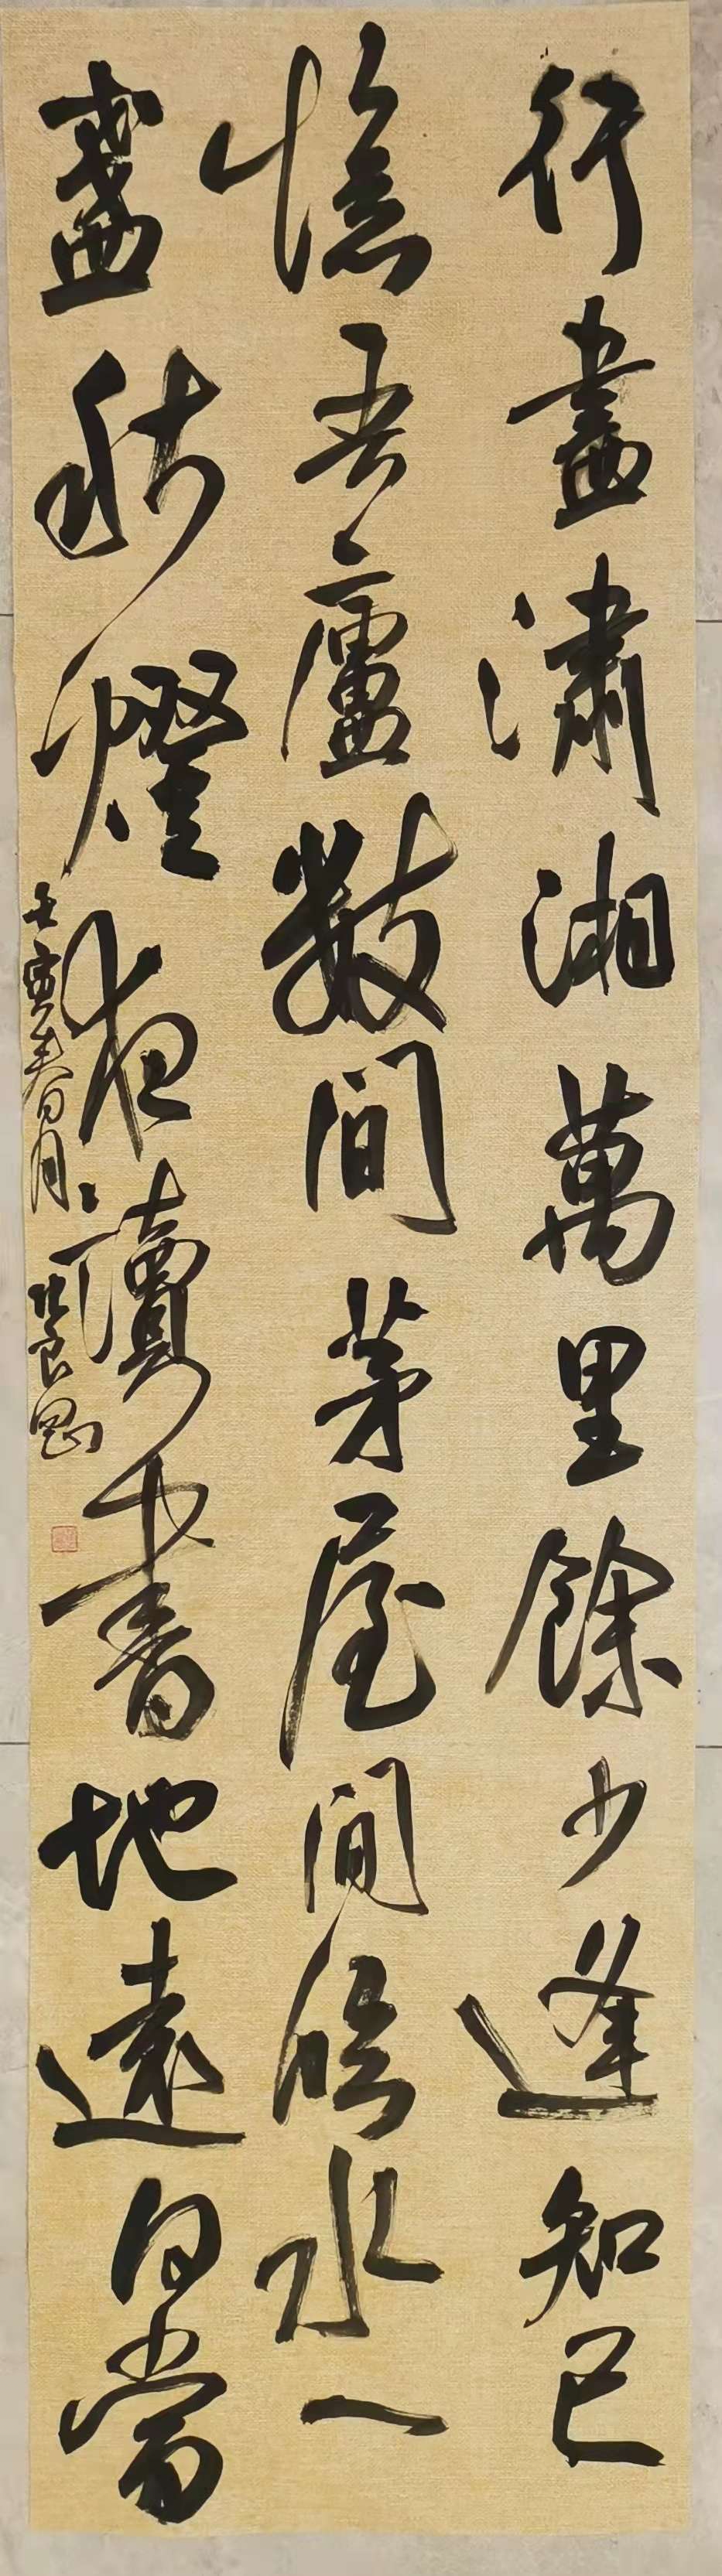 行盡瀟湘萬里餘少逢知己
憶吾廬數間茅屋閒臨水一
盞秋燈夜讀書地遠何當
壬寅春月 張良